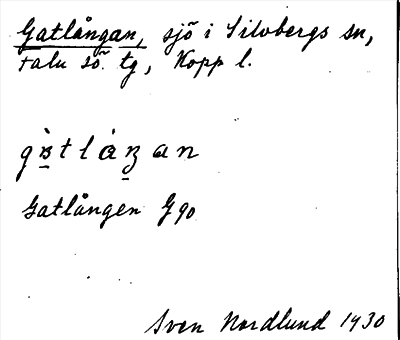 Gatlången, sjö i Silvbergs sn,
Falu sö. tg, Kopp l.
Gatlången G 90
Sven Nordlund 1930